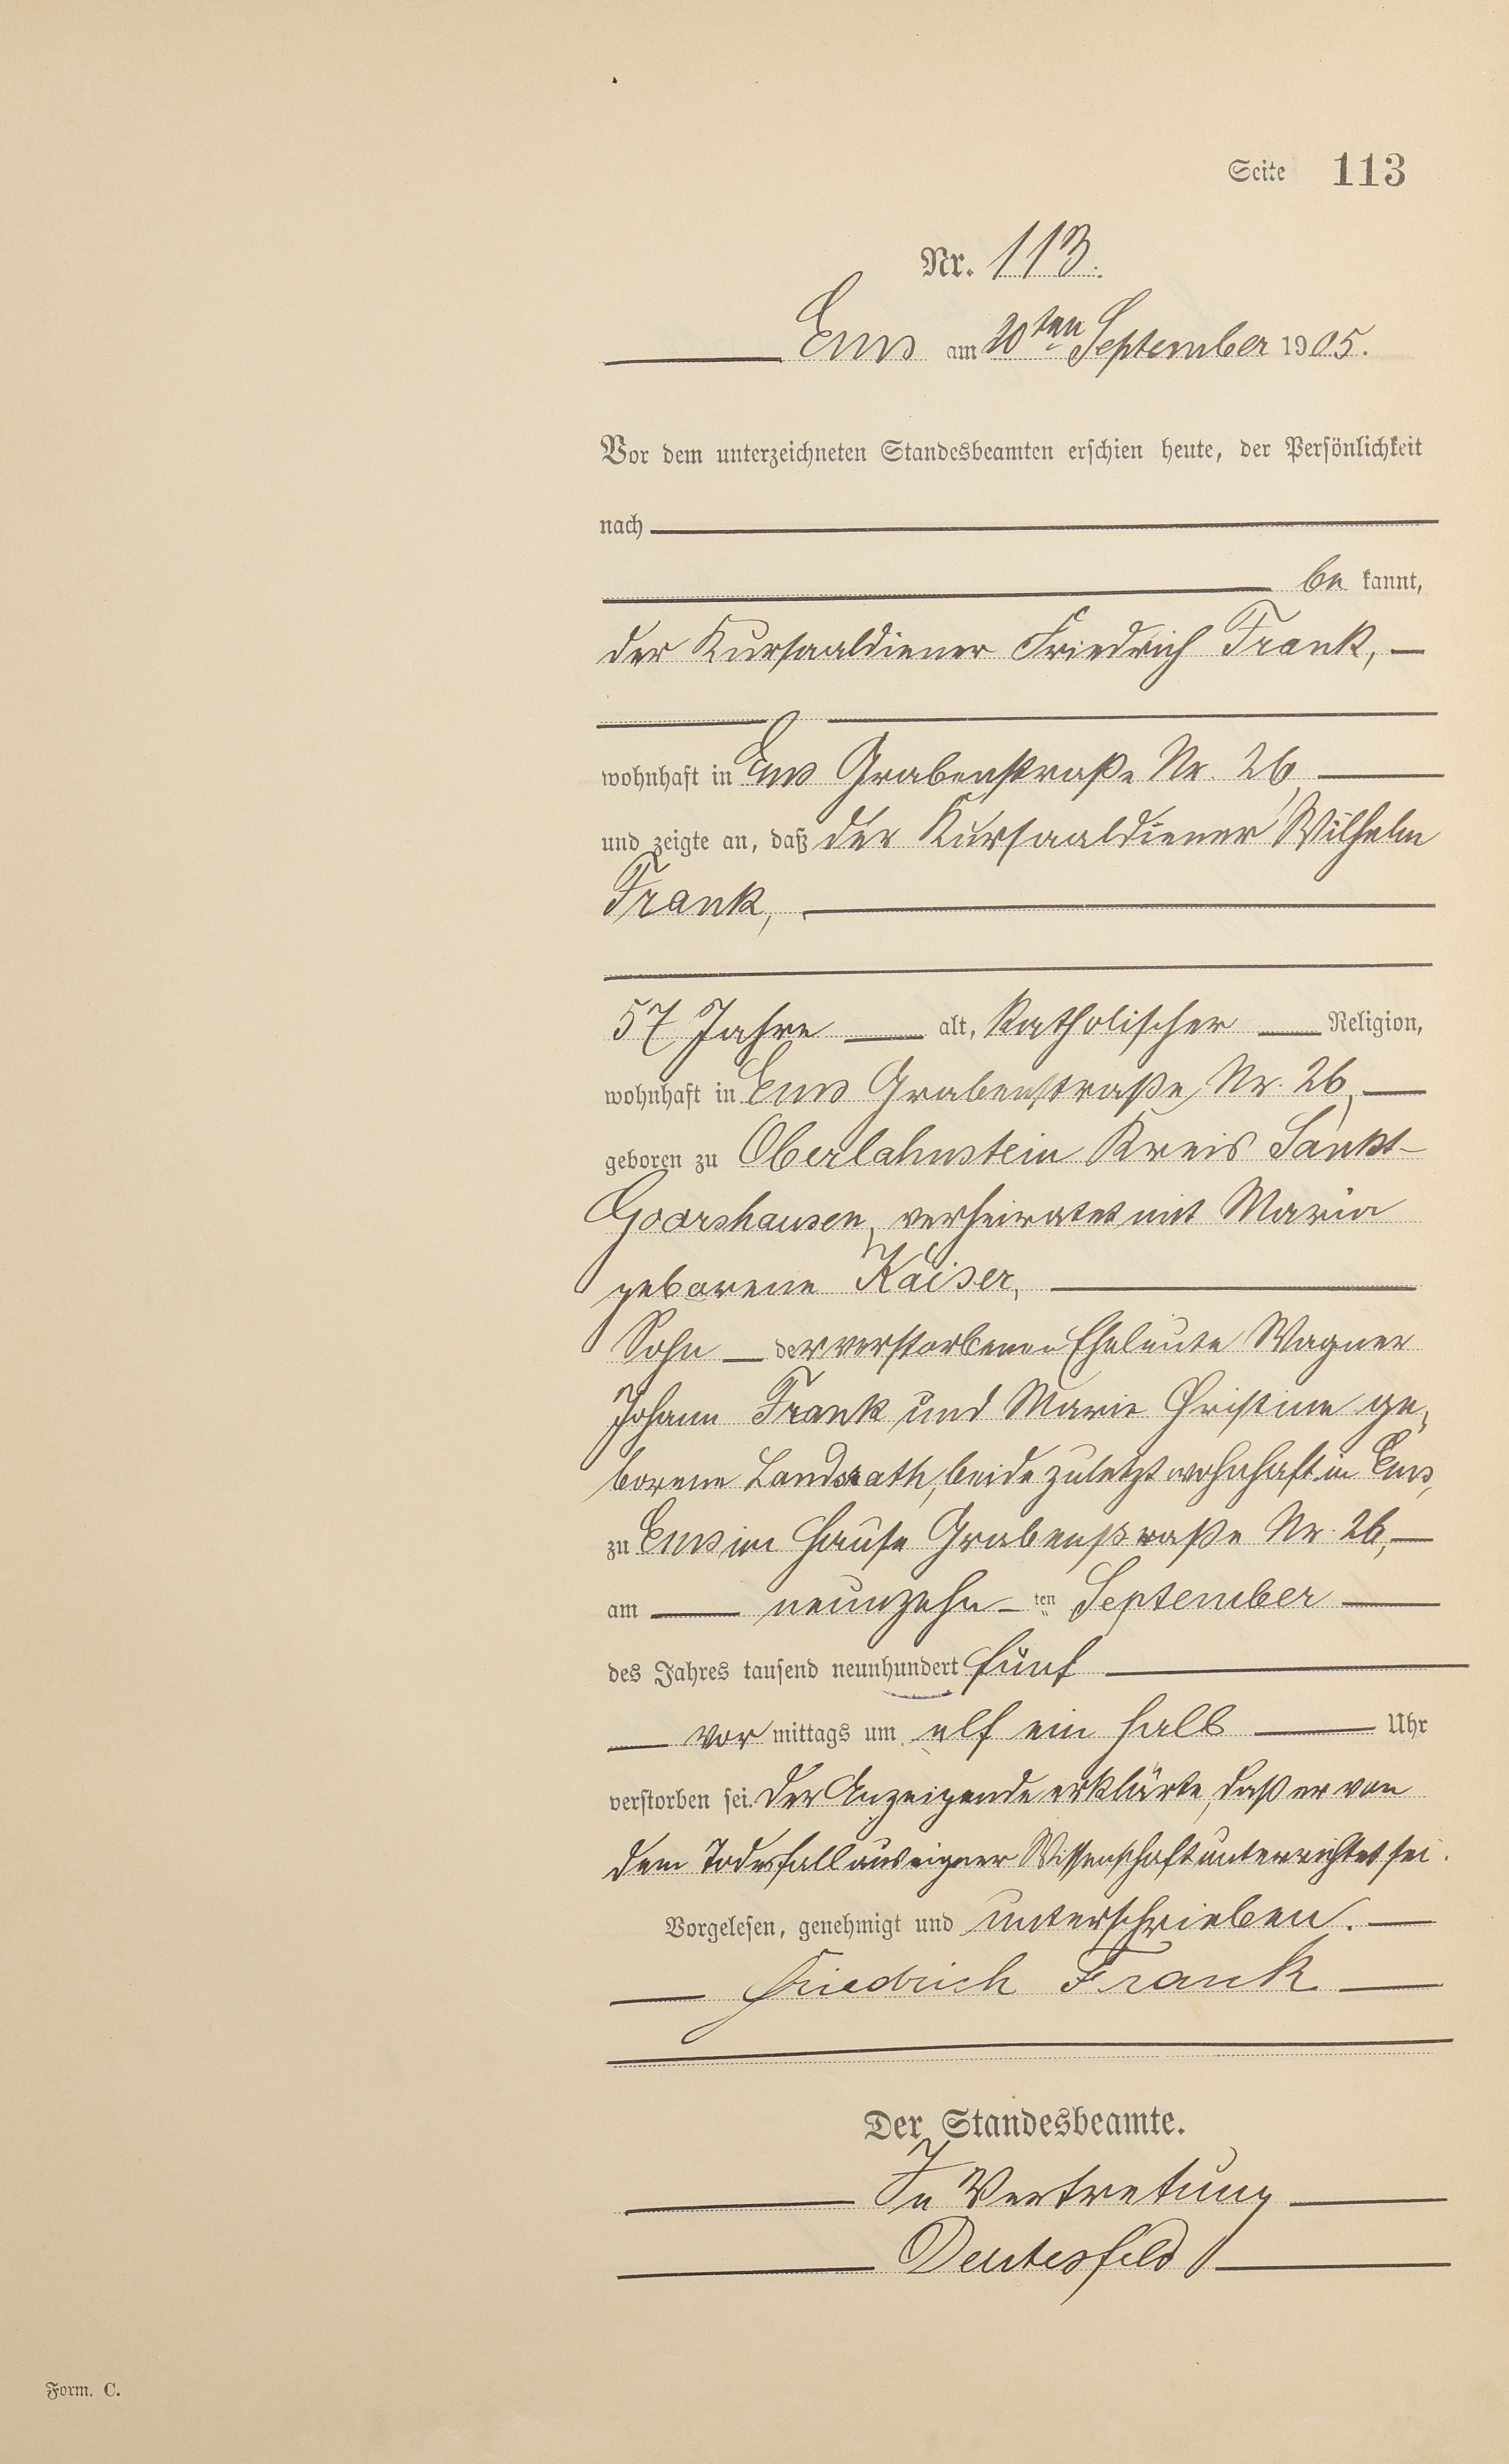 Seite 113
Nr. 113.
Ems am 20ten September 1905.
Vor dem unterzeichneten Standesbeamten erschien heute, der Persönlichkeit
nach
be kannt,
der Kursaaldiener Friedrich Frank,
wohnhaft in Ems Grabenstraße Nr. 26,
und zeigte an, daß der Kursaaldiener Wilhelm
Frank,
57 Jahre alt, katholischer Religion,
wohnhaft in Ems Grabenstraße Nr. 26,
geboren zu Oberlahnstein Kreis Sankt-
Goarshausen, verheiratet mit Maria
geborene Kaiser,
Sohn der verstorbenen Eheleute Wagner
Johann Frank und Marie Christine ge-
borene Landsrath, beide zuletzt wohnhaft in Ems,
zu Ems im Hause Grabenstraße Nr. 26,
am neunzehn ten September
des Jahres tausend neunhundert fünf
vor mittags um elf ein halb Uhr
verstorben sei. Der Anzeigende erklärte, daß er von
dem Todesfall aus eigner Wissenschaft unterrichtet sei.
Vorgelesen, genehmigt und unterschrieben.
Friedrich Frank
Der Standesbeamte.
In Vertretung
Deutesfeld
Form. C.